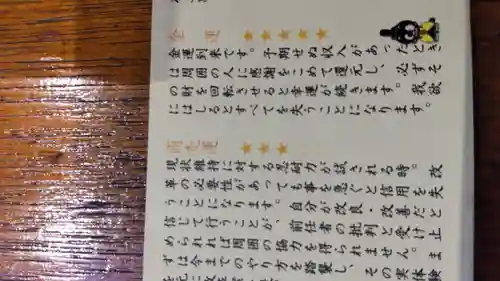 金運 ★★★★★
金運到来です。予期せぬ収入があったとき
は周囲の人に感謝をこめて還元し、必ずそ
の財を回転させると幸運が続きます。我欲
にはしるとすべてを失うことになります。
商売運 ★★★
現状維持に対する忍耐力が試される時。改
革の必要性があっても事を急ぐと信用を失
うことになります。自分が改良・改善だと
信じて行うことが、前任者の批判と受け止
められれば周囲の協力を得られません。ま
ずは今までのやり方を踏襲し、その実体験
を元に改